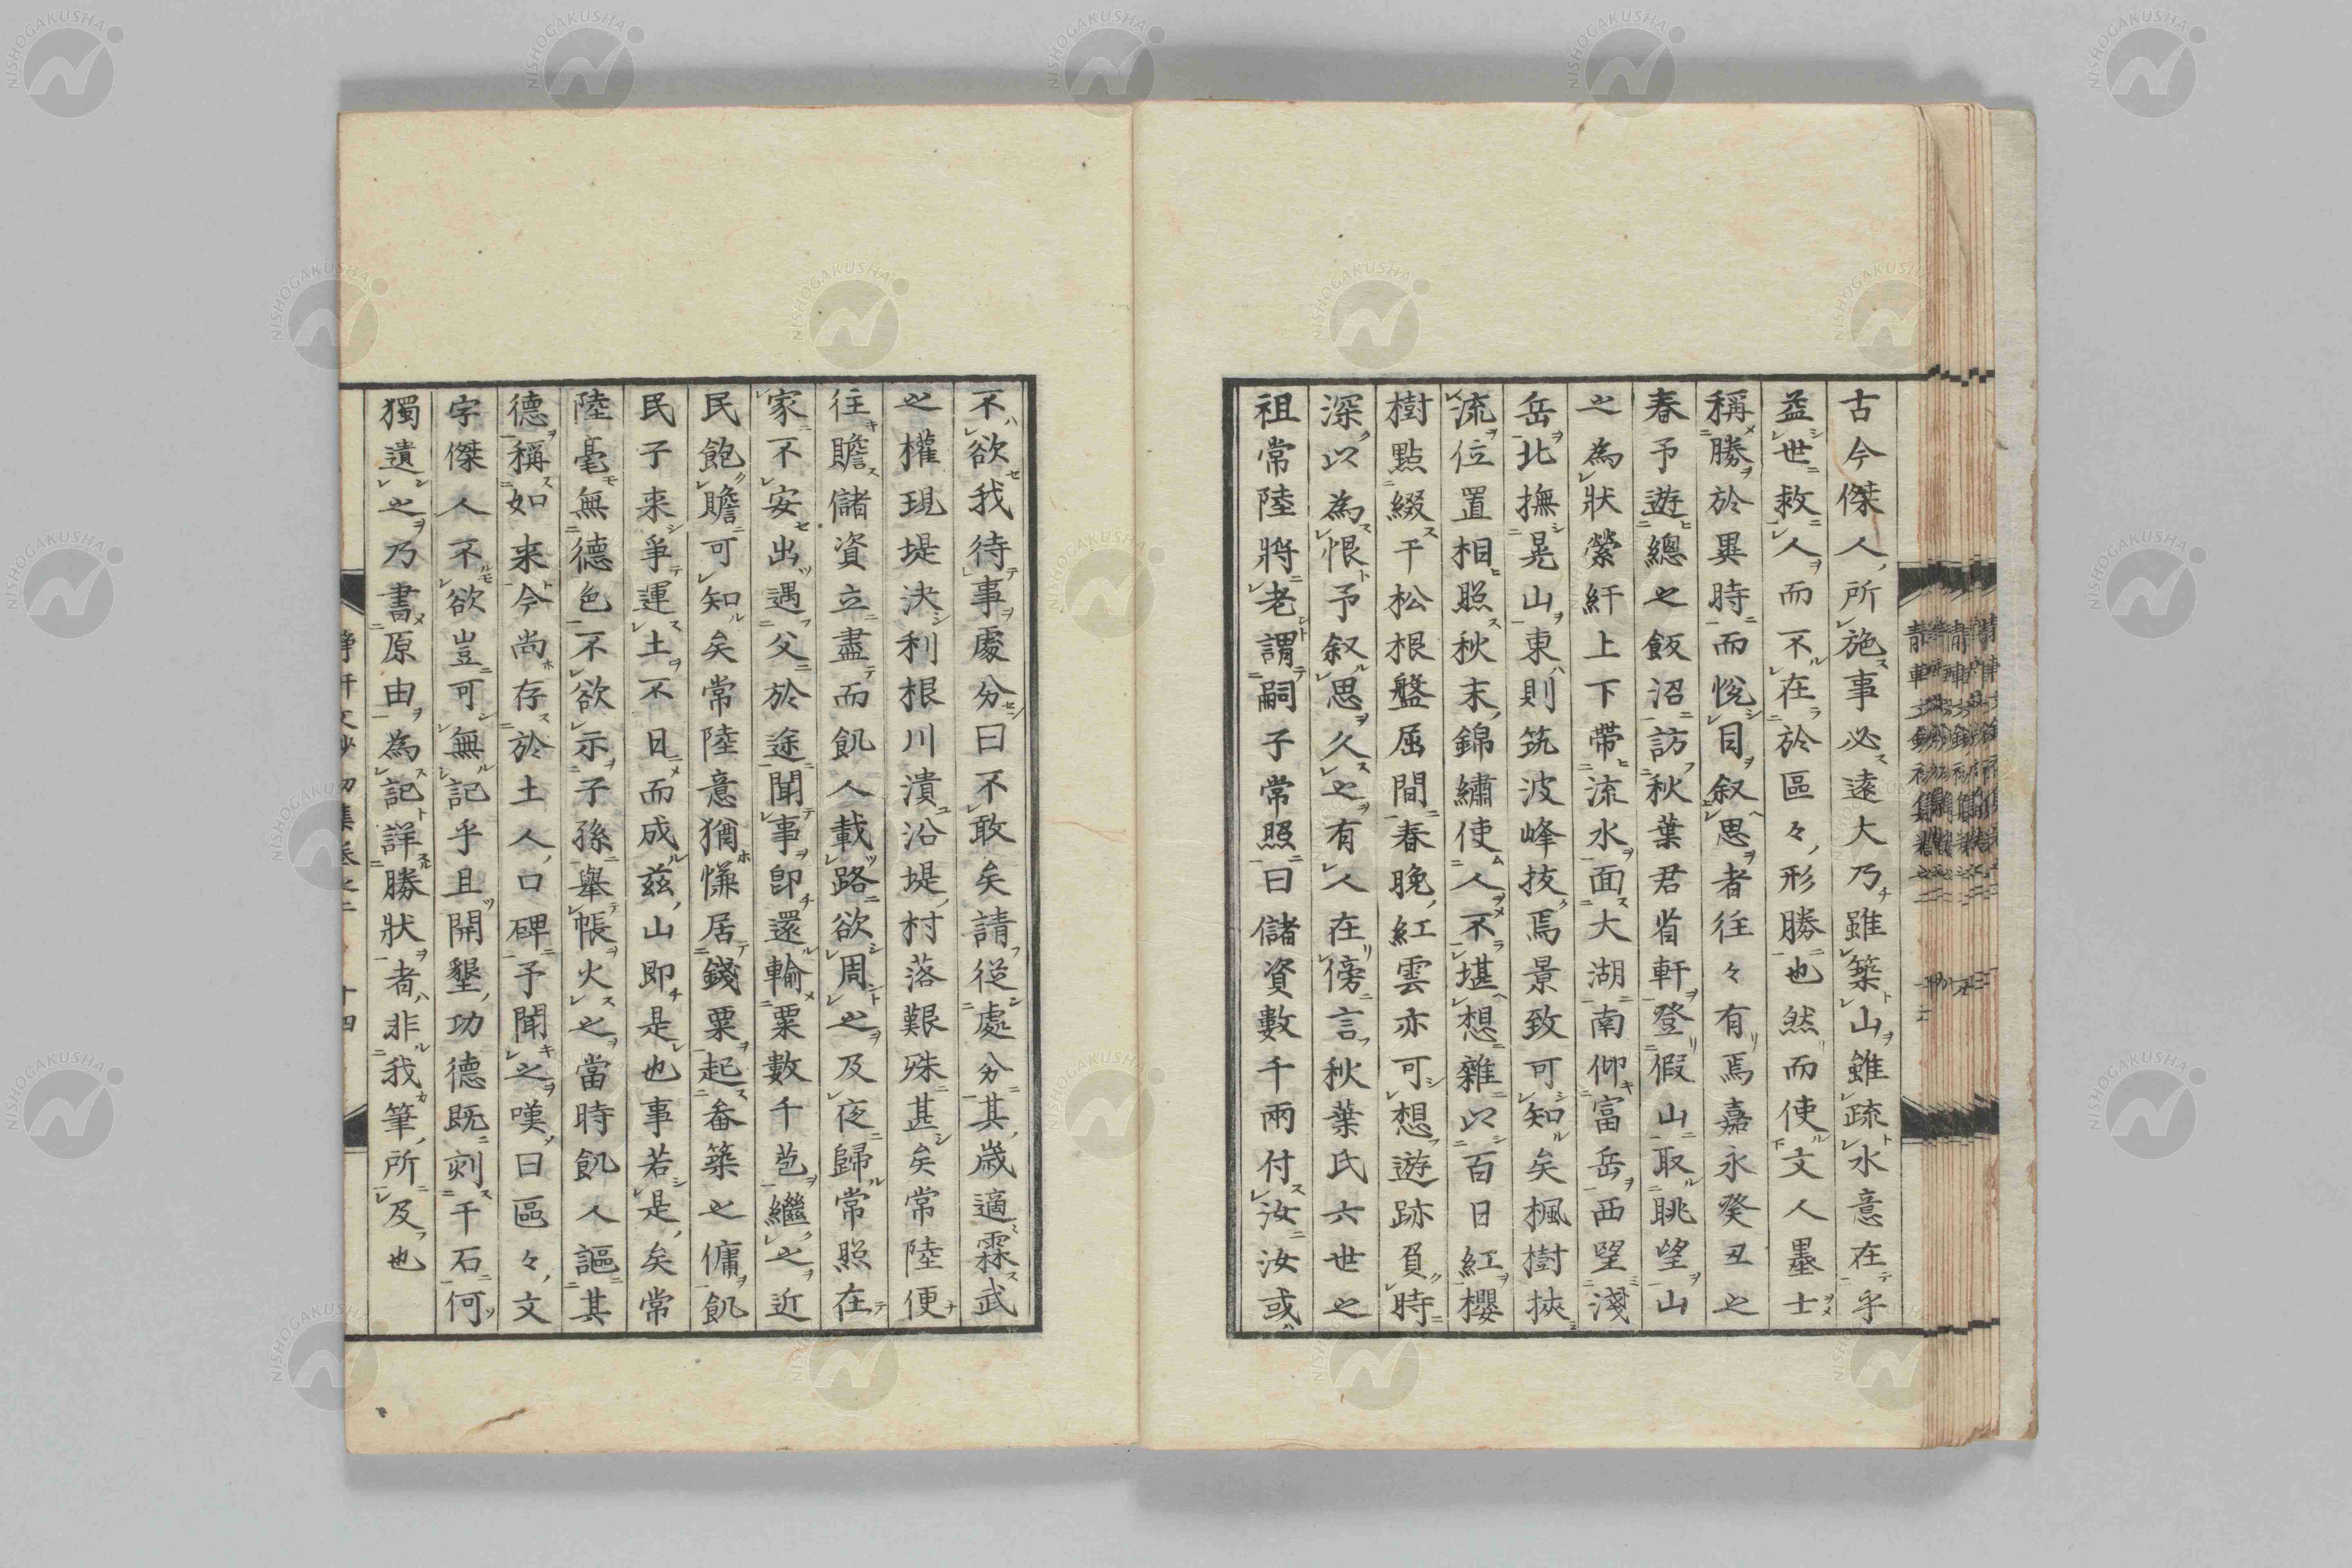 古今傑人所施事必遠大乃雖築山雖疏水意在乎
益世救人而不在於區々形勝也然而使文人墨士
稱勝於異時而悅目叙思者往々有焉嘉永癸丑之
春予遊總之飯沼訪秋葉君省軒登假山取眺望山
之為狀縈紆上下帶流水面大湖南仰富岳西望淺
岳北撫晃山東則筑波峰抜焉景致可知矣楓樹挾
流位置相照秋末錦繡使人不堪想雜以百日紅櫻
樹點綴干松根盤屈間春晚紅雲亦可想遊跡負時
深以為恨予叙思久之有人在傍言秋葉氏六世之
祖常陸將老謂嗣子常照曰儲資數千兩付汝汝或
不欲我待事處分曰不敢矣請從處分其歲適霖武
之權現堤決利根川潰沿堤村落艱殊甚矣常陸便
往贍儲資立盡而飢人載路欲周之及夜歸常照在
家不安出遇父於途聞事即還輸粟數千苞繼之近
民飽贍可知矣常陸意猶慊居錢粟起畚築之傭飢
民子来爭運土不日而成茲山即是也事若是矣常
陸毫無德色不欲示子孫舉帳火之當時飢人謳其
德稱如来今尚存於土人口碑予聞之嘆曰區々文
字傑人不欲豈可無記乎且開墾功德既刻干石何
獨遺之乃書原由為記詳勝狀者非我筆所及也
NISHOGAKUSHA